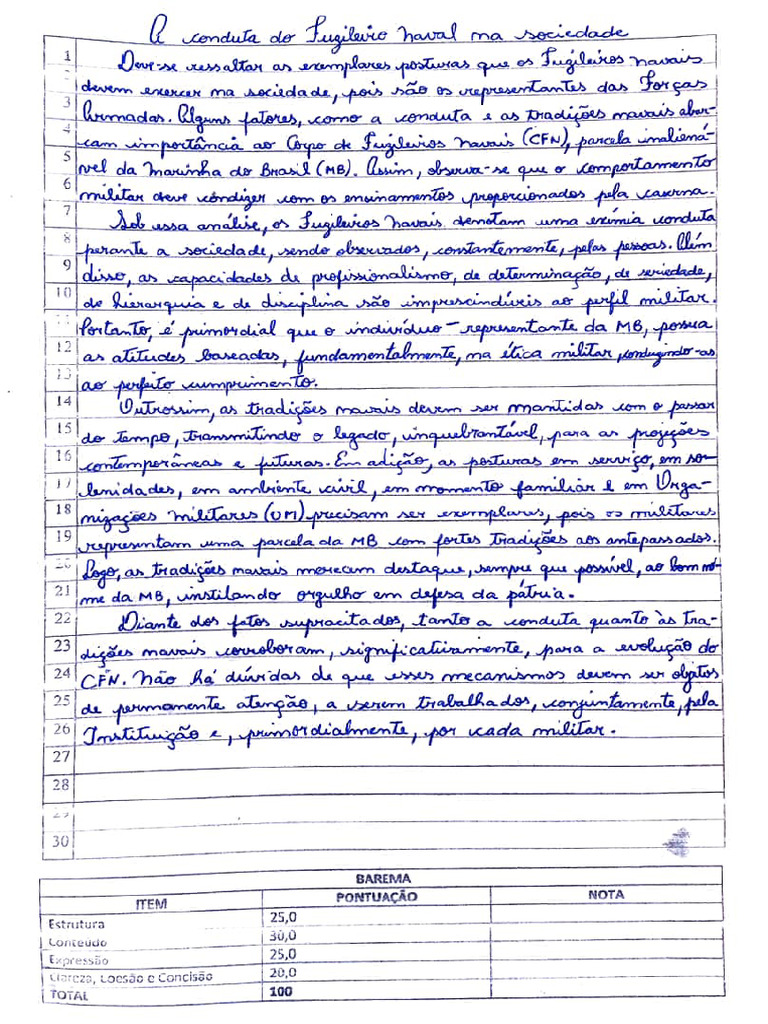 A conduta do Fuzileiro Naval na sociedade
1 Deve-se ressaltar as exemplares posturas que os Fuzileiros Navais
devem exercer na sociedade, pois são os representantes das Forças
3 Armadas. Alguns fatores, como a conduta e as tradições navais abar-
4 cam importância ao Corpo de Fuzileiros Navais (CFN), parcela inaliená-
5 vel da Marinha do Brasil (MB). Assim, observa-se que o comportamento
6 militar deve condizer com os ensinamentos proporcionados pela caserna.
7 Sob essa análise, os Fuzileiros Navais denotam uma exímia conduta
8 perante a sociedade, sendo observados, constantemente, pelas pessoas. Além
9 disso, as capacidades de profissionalismo, de determinação, de seriedade,
10 de hierarquia e de disciplina são imprescindíveis ao perfil militar.
11 Portanto, é primordial que o indivíduo-representante da MB, possua
12 as atitudes baseadas, fundamentalmente, na ética militar, conduzindo-as
13 ao perfeito cumprimento.
14 Outrossim, as tradições navais devem ser mantidas com o passar
15 do tempo, transmitindo o legado, inquebrantável, para as projeções
16 contemporâneas e futuras. Em adição, as posturas em serviço, em so-
17 lenidades, em ambiente civil, em momento familiar e em Orga-
18 nizações militares (OM) precisam ser exemplares, pois os militares
19 representam uma parcela da MB com fortes tradições aos antepassados.
20 Logo, as tradições navais merecem destaque, sempre que possível, ao bom nô-
21 me da MB, instilando orgulho em defesa da pátria.
22 Diante dos fatos supracitados, tanto a conduta quanto às tra-
23 dições navais corroboram, significativamente, para a evolução do
24 CFN. Não há dúvidas de que esses mecanismos devem ser objetos
25 de permanente atenção, a serem trabalhados, conjuntamente, pela
26 Instituição e, primordialmente, por cada militar.
27
28
29
30
BAREMA
ITEM PONTUAÇÃO NOTA
Estrutura 25,0
Conteúdo 30,0
Expressão 25,0
Clareza, Coesão e Concisão 20,0
TOTAL 100